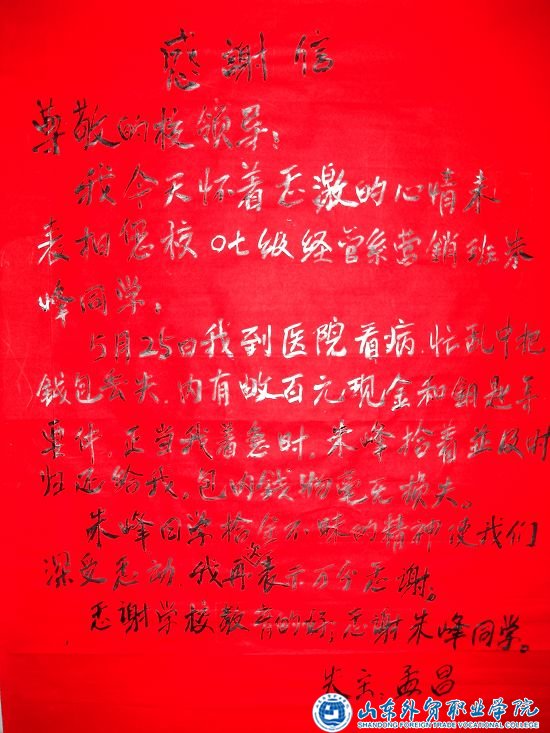 感謝信
尊敬的校领导：
我今天怀着感激的心情来
表扬您校07级经管系营銷班朱
峰同学：
5月25日我到医院看病.忙乱中把
錢包丢失、内有数百元现金和鈅匙等
要件，正当我着急时，朱峰拾着並及时
归还给我，包内钱物毫无损失。
朱峰同学拾金不昧的精神使我们
深受感动 我再次表示万分感谢。
感谢学校教育的好，感谢朱峰同学。
失主：孟昌
山东外贸职业学院
SHANDONG FOREIGN TRADE VOCATIONAL COLLEGE